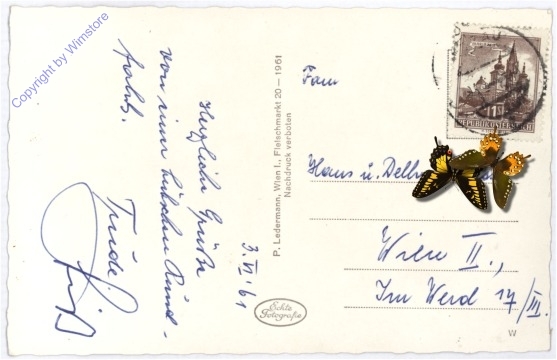 Copyright by Wimstore
3. VI. 61
Herzliche Grüße
von einer hübschen Rund-
fahrt.
Trude
P. Ledermann, Wien I., Fleischmarkt 20 — 1961
Nachdruck verboten
Echte
Fotografie
REPUBLIK ÖSTERREICH
Fam
Hans u.
Wien II.,
Im Werd 17/III.
W